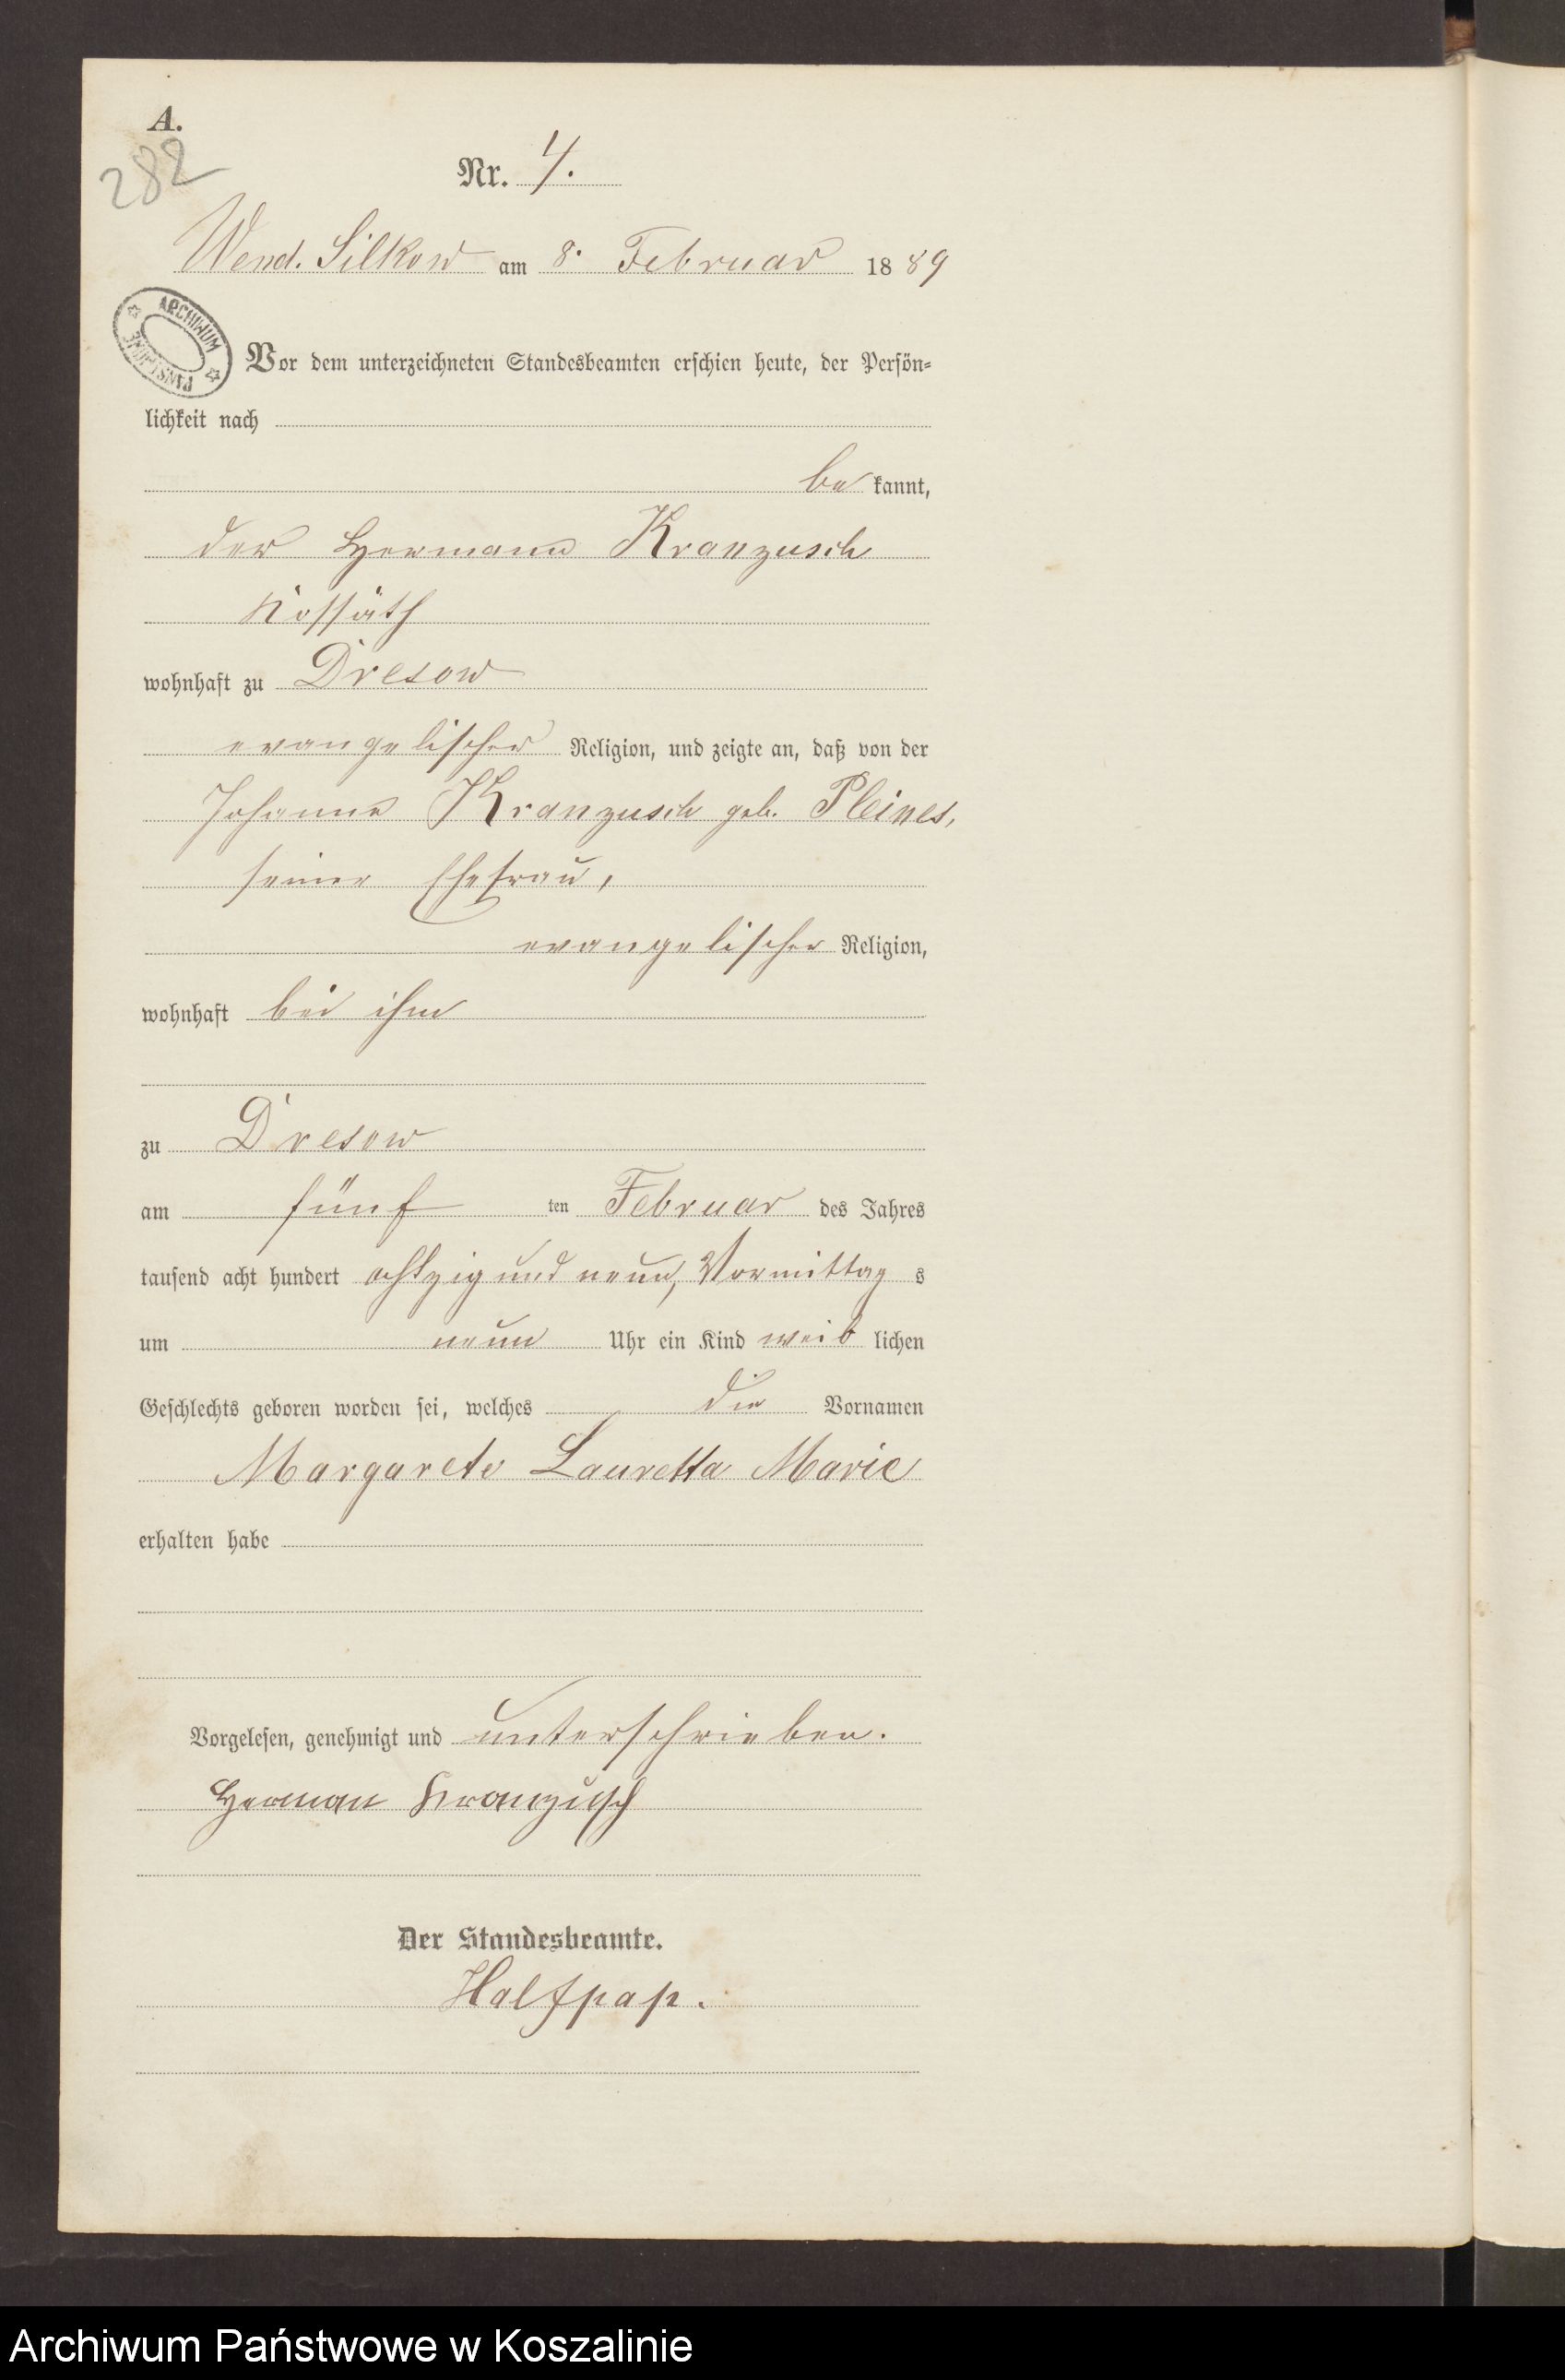 A.
282
Nr. 4.
Wend. Silkow am 8. Februar 1889
ARCHIWUM PAŃSTWOWE
Vor dem unterzeichneten Standesbeamten erschien heute, der Persön-
lichkeit nach
be kannt,
der Hermann Kranzusch
Kossäth
wohnhaft zu Dresow
evangelischer Religion, und zeigte an, daß von der
Johanne Kranzusch geb. Pleines,
seiner Ehefrau,
evangelischer Religion,
wohnhaft bei ihm
zu Dresow
am fünf ten Februar des Jahres
tausend acht hundert achtzig und neun, Vormittag s
um neun Uhr ein Kind weib lichen
Geschlechts geboren worden sei, welches die Vornamen
Margarete Lauretta Marie
erhalten habe
Vorgelesen, genehmigt und unterschrieben.
Herman Kranzusch
Der Standesbeamte.
Halfpap.
Archiwum Państwowe w Koszalinie